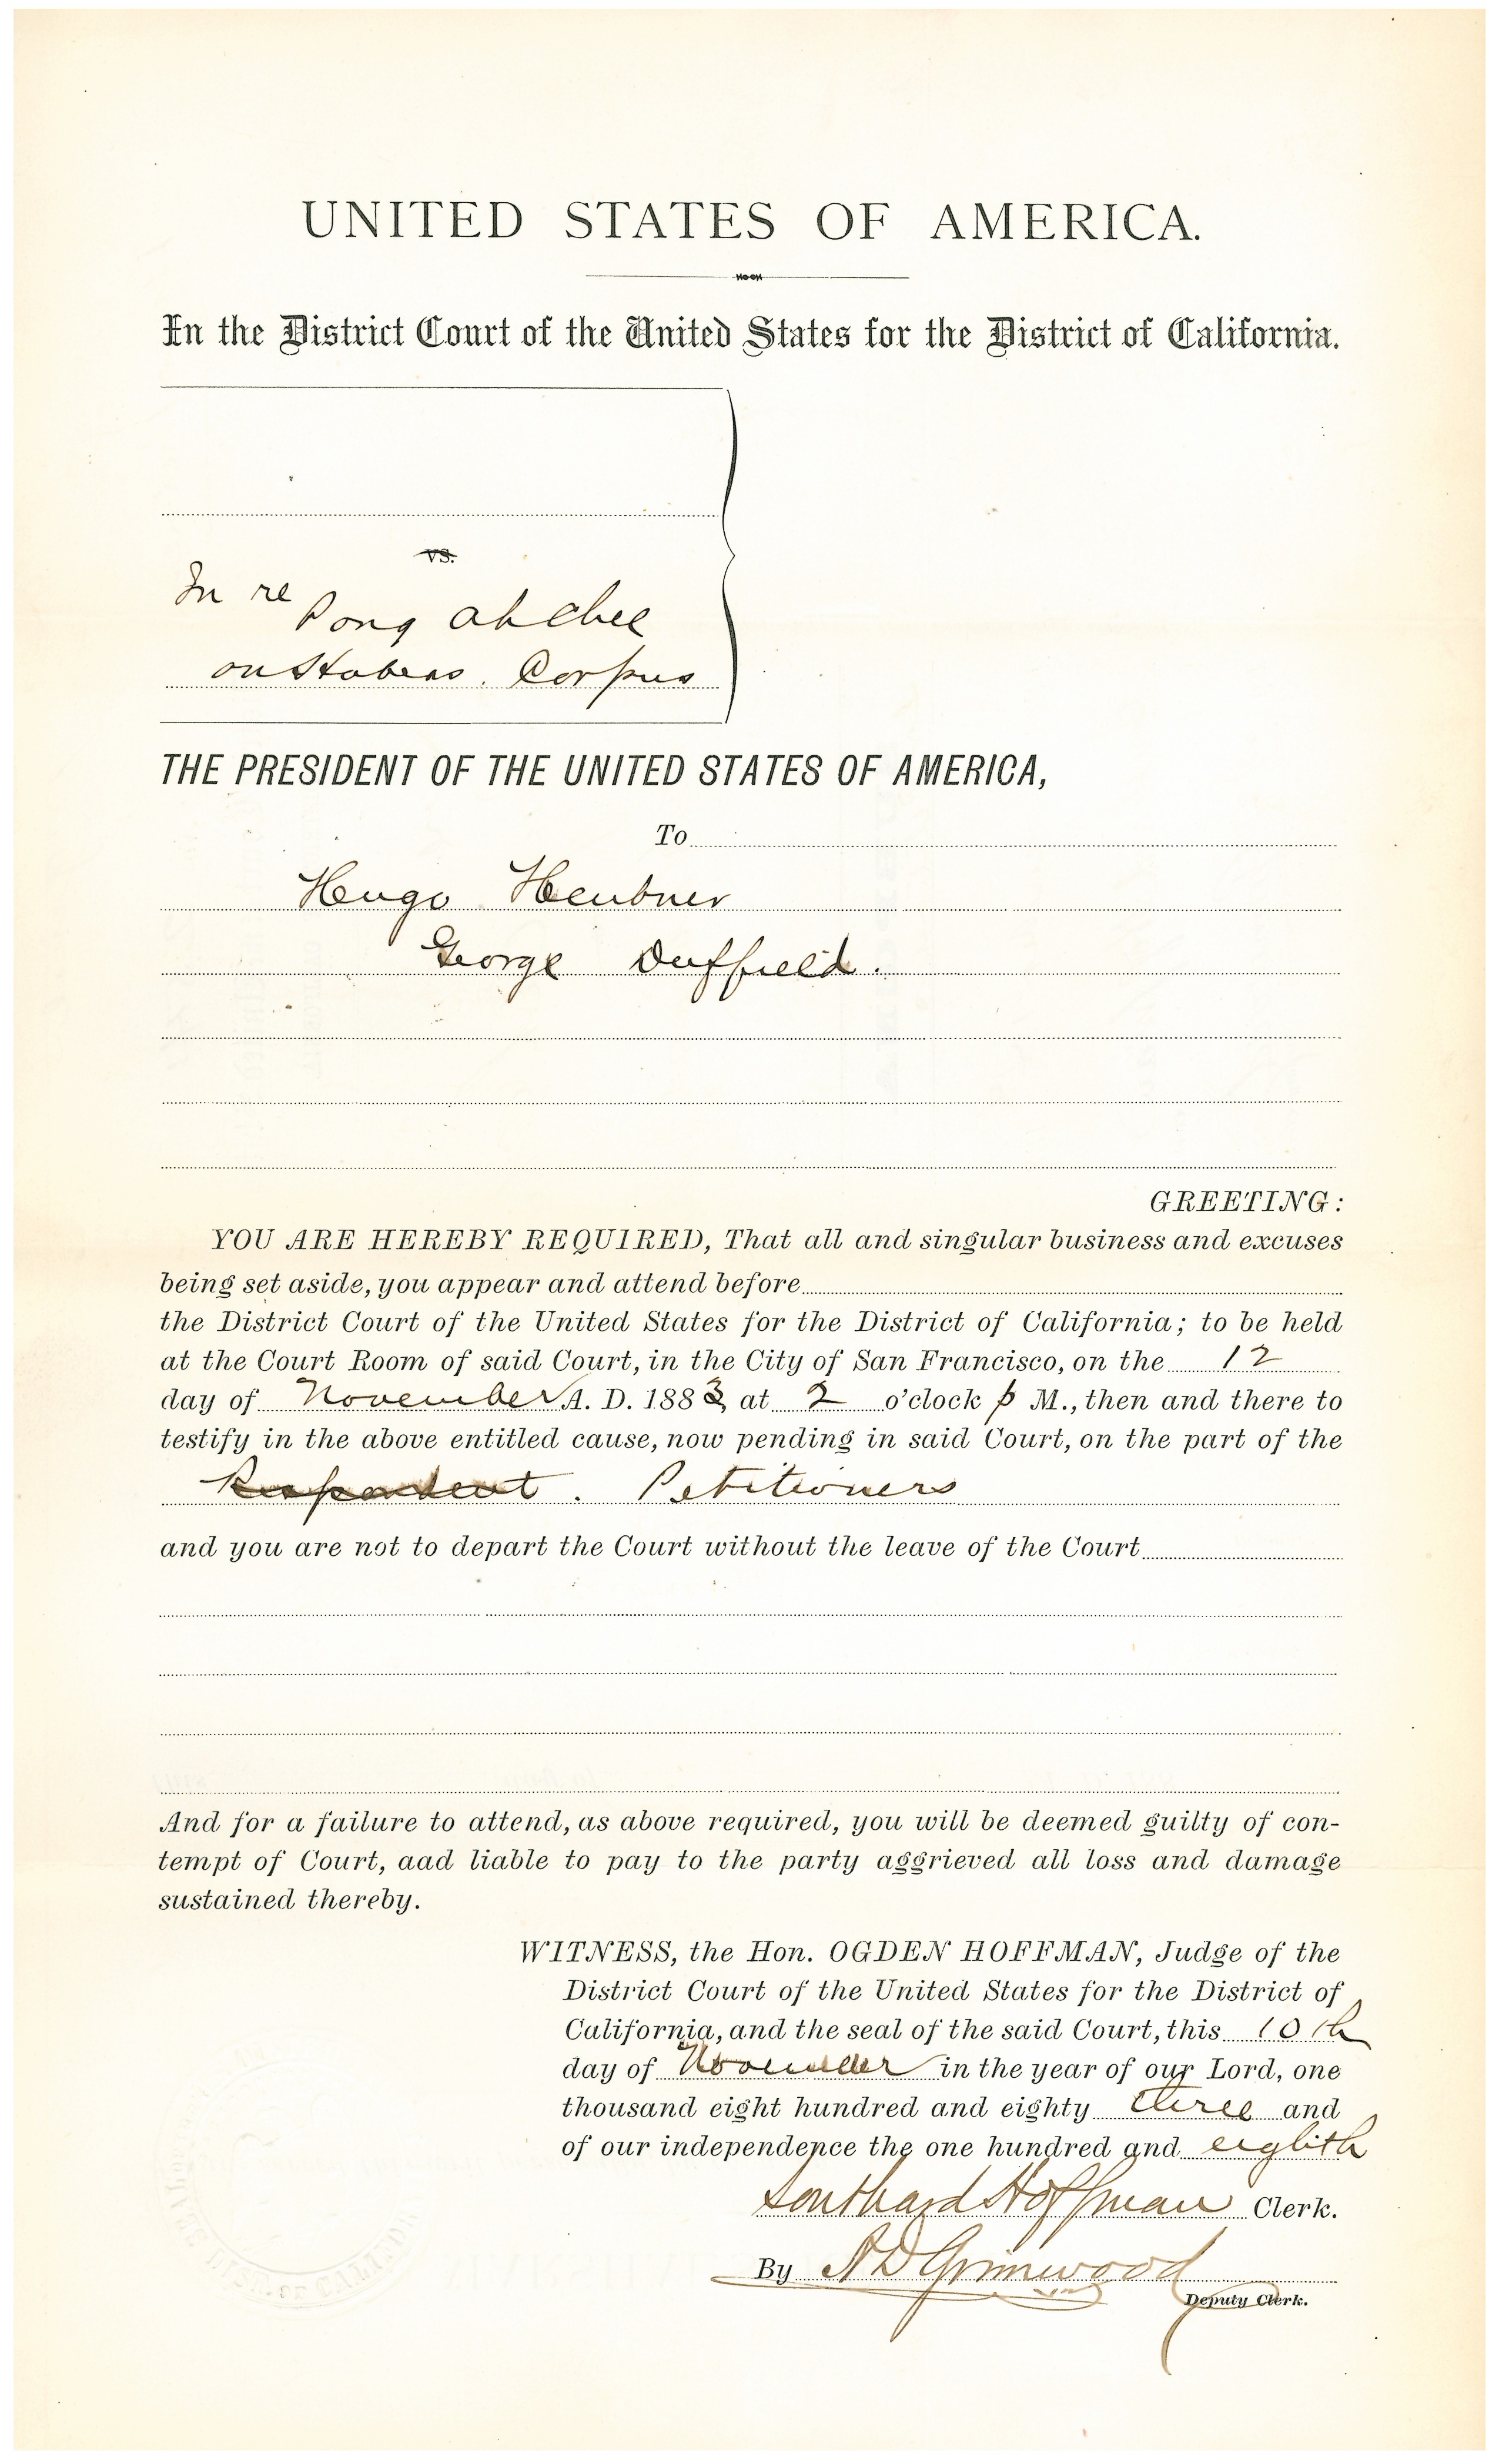 UNITED STATES OF AMERICA.
In the District Court of the United States for the District of California.
vs.
In re
Pong Ah Chee
on Habeas. Corpus
THE PRESIDENT OF THE UNITED STATES OF AMERICA,
To
Hugo Heubner
George Duffield.
GREETING:
YOU ARE HEREBY REQUIRED, That all and singular business and excuses
being set aside, you appear and attend before
the District Court of the United States for the District of California; to be held
at the Court Room of said Court, in the City of San Francisco, on the 12
day of November A. D. 1883, at 2 o'clock p M., then and there to
testify in the above entitled cause, now pending in said Court, on the part of the
Respondent. Petitioners
and you are not to depart the Court without the leave of the Court
And for a failure to attend, as above required, you will be deemed guilty of con-
tempt of Court, aad liable to pay to the party aggrieved all loss and damage
sustained thereby.
WITNESS, the Hon. OGDEN HOFFMAN, Judge of the
District Court of the United States for the District of
California, and the seal of the said Court, this 10th
day of November in the year of our Lord, one
thousand eight hundred and eighty three and
of our independence the one hundred and eighth
Southard Hoffman Clerk.
By Grimwood
Deputy Clerk.